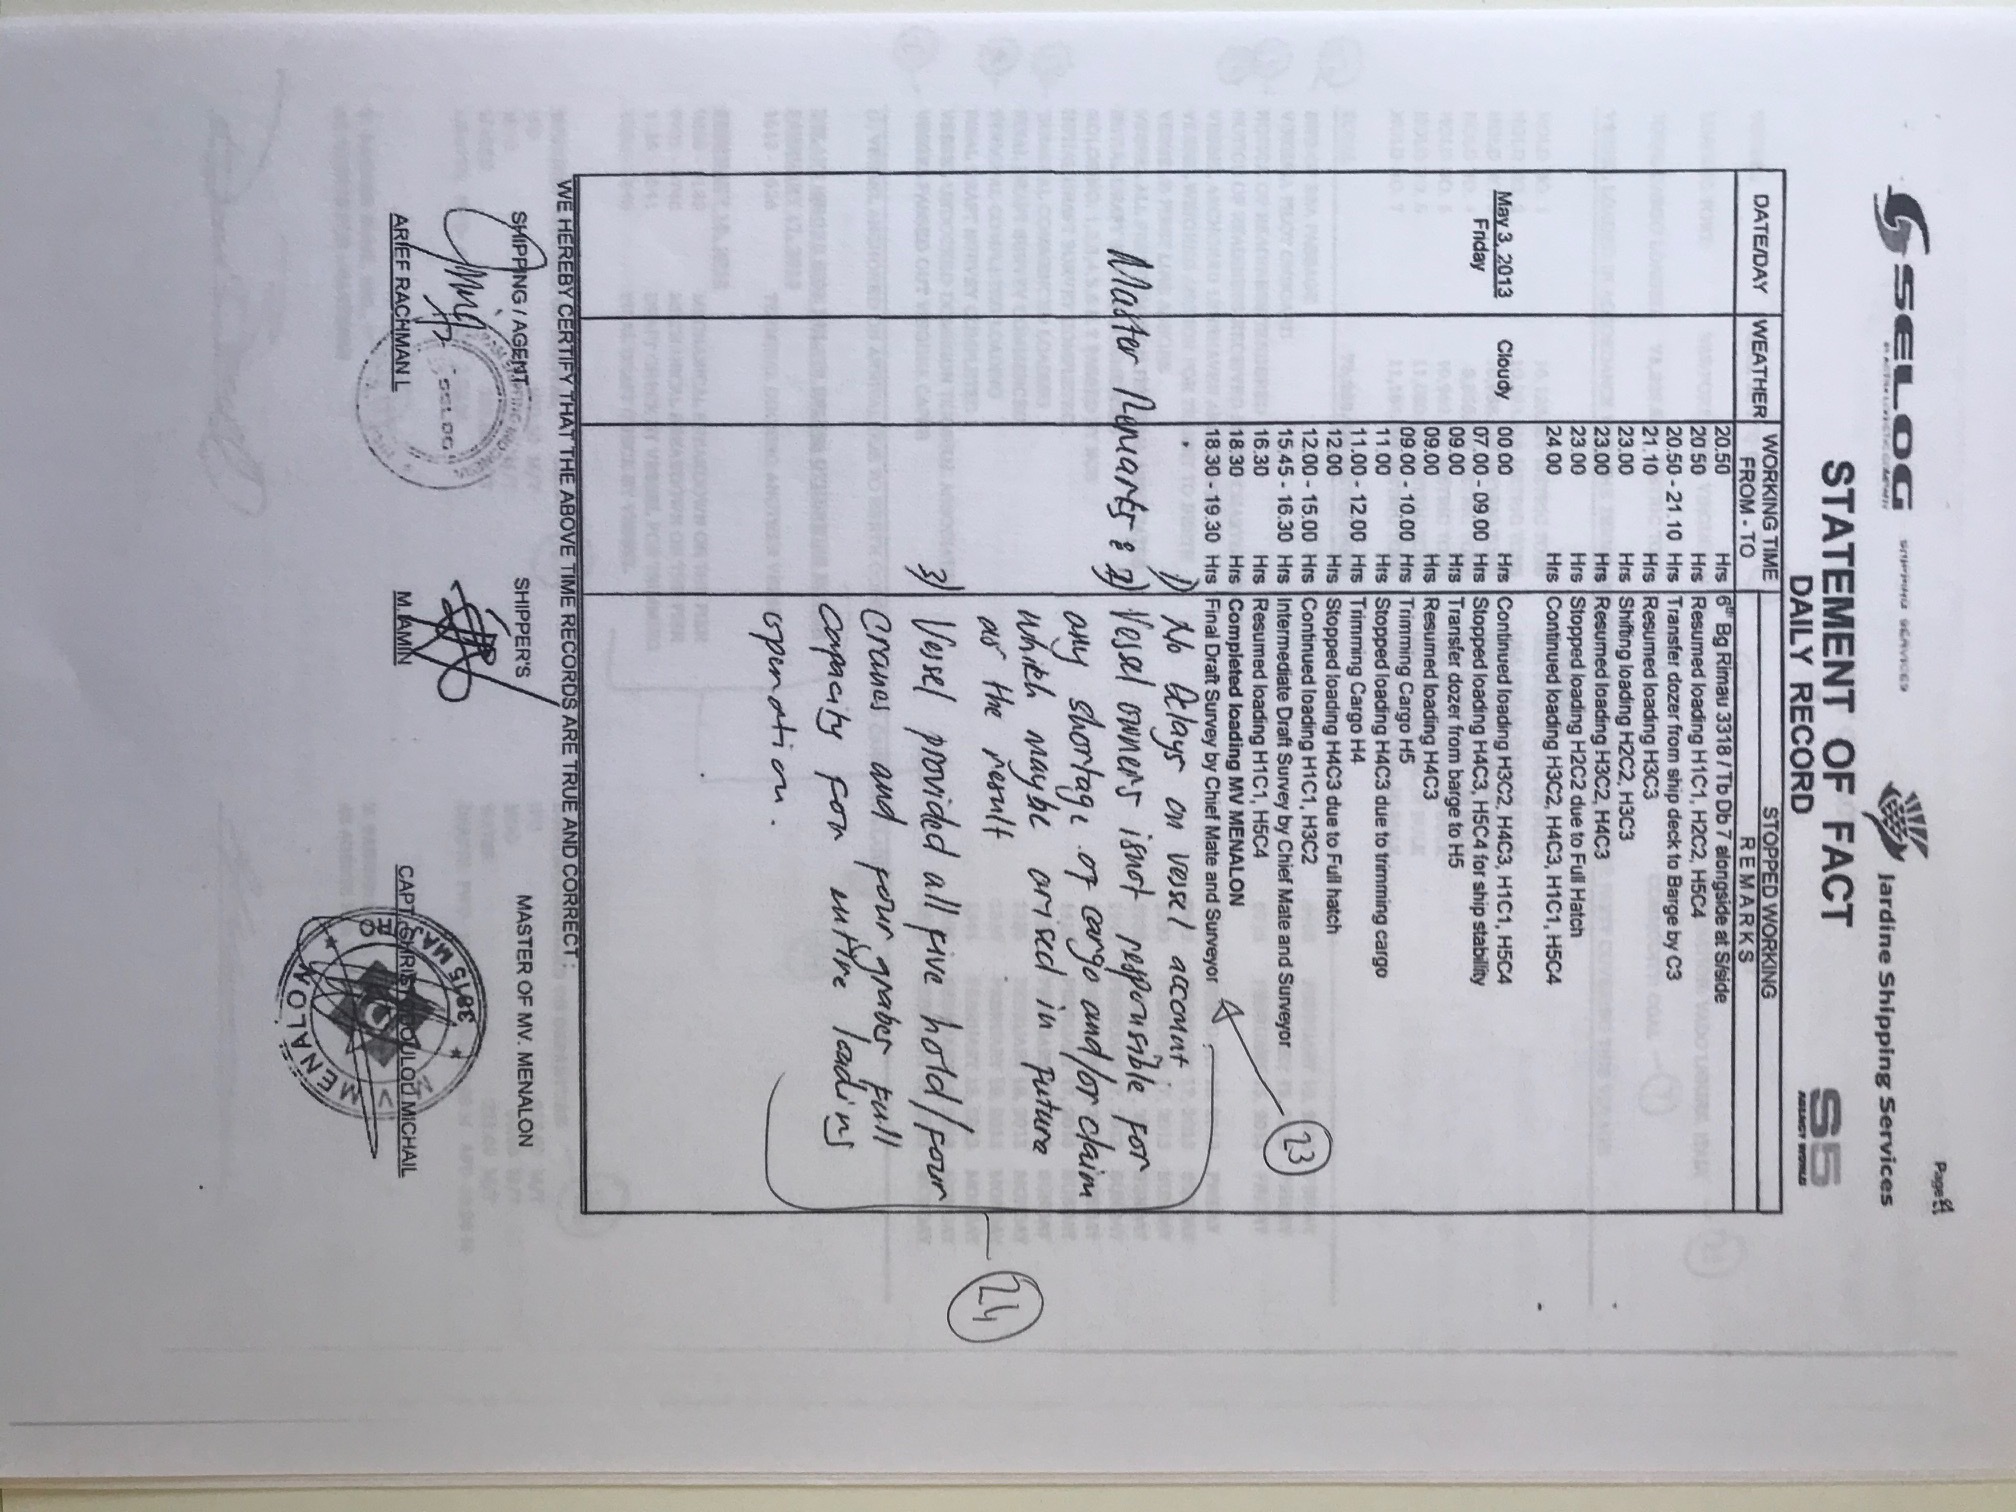 Page
SELOG SHIPPING SERVICES
Jardine Shipping Services
STATEMENT OF FACT
S5
AGENCY WORLD
DAILY RECORD
DATE/DAY WEATHER WORKING TIME FROM - TO STOPPED WORKING REMARKS
20.50 Hrs 6th Bg Rimau 3318 / Tb Db 7 alongside at S/side
20.50 Hrs Resumed loading H1C1, H2C2, H5C4
20.50 - 21.10 Hrs Transfer dozer from ship deck to Barge by C3
21.10 Hrs Resumed loading H3C3
23.00 Hrs Shifting loading H2C2, H3C3
23.00 Hrs Resumed loading H3C2, H4C3
23.00 Hrs Stopped loading H2C2 due to Full Hatch
24.00 Hrs Continued loading H3C2, H4C3, H1C1, H5C4
May 3, 2013 Cloudy 00.00 Hrs Continued loading H3C2, H4C3, H1C1, H5C4
Friday 07.00 - 09.00 Hrs Stopped loading H4C3, H5C4 for ship stability
09.00 Hrs Transfer dozer from barge to H5
09.00 Hrs Resumed loading H4C3
09.00 - 10.00 Hrs Trimming Cargo H5
11.00 Hrs Stopped loading H4C3 due to trimming cargo
11.00 - 12.00 Hrs Trimming Cargo H4
12.00 Hrs Stopped loading H4C3 due to Full hatch
12.00 - 15.00 Hrs Continued loading H1C1, H3C2
23
15.45 - 16.30 Hrs Intermediate Draft Survey by Chief Mate and Surveyor
16.30 Hrs Resumed loading H1C1, H5C4
18.30 Hrs Completed loading MV MENALON
18.30 - 19.30 Hrs Final Draft Survey by Chief Mate and Surveyor
1) No Delays on vessel account.
Master Remarks : 2) Vessel owners isnot responsible for
any shortage of cargo and/or claim
which maybe arised in future
as the result
24
3) Vessel provided all five hold/four
cranes and four grabes full
capacity for entire loading
operation.
WE HEREBY CERTIFY THAT THE ABOVE TIME RECORDS ARE TRUE AND CORRECT :
SHIPPING / AGENT SHIPPER'S MASTER OF MV. MENALON
SELOG
ARIEF RACHMAN L M. IAMIN CAPT. CHRISTODOULOU MICHAIL
3815 MAJURO
M.V. MENALON